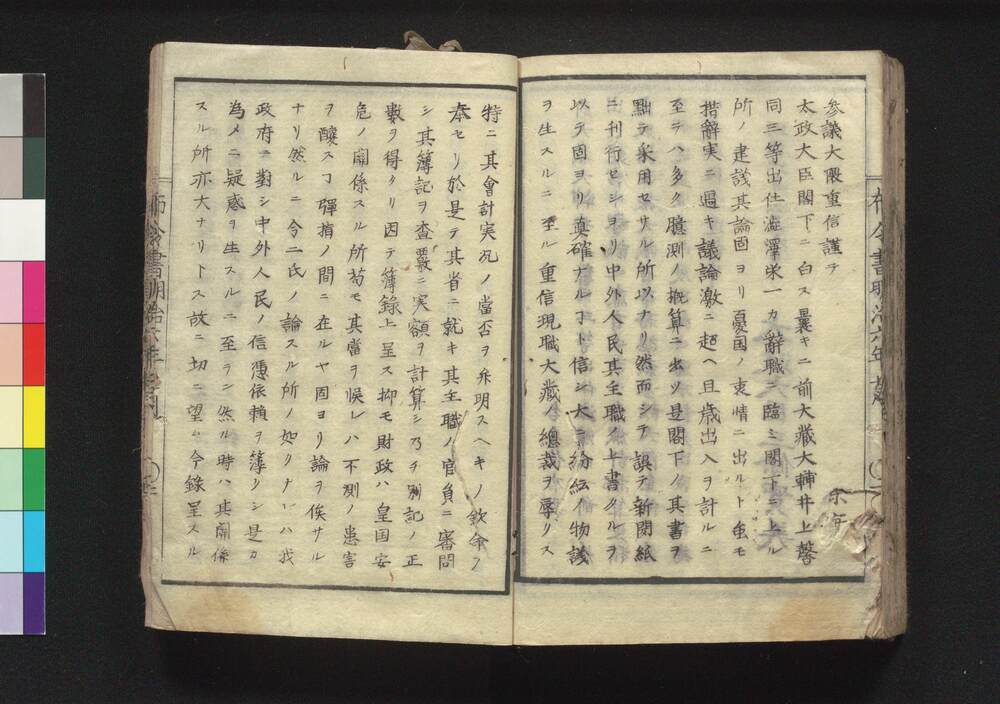 参議大隈重信謹テ
太政大臣閣下ニ白ス曩キニ前大藏大輔井上馨
同三等出仕澁澤栄一カ辭職ニ臨ミ閣下ニ上ル
所ノ建議其論固ヨリ憂国ノ衷情ニ出ルト虽モ
措辭実ニ過キ議論激ニ趨ヘ且歳出入ヲ計ルニ
至テハ多ク臆測ノ概算ニ出ツ是閣下ノ其書ヲ
黜テ采用セサル所以ナリ然而シテ誤テ新聞紙
ニ刊行セシヨリ中外人民其主職ノ上書タルヲ
以テ固ヨリ真確ナルヿト信シ大ニ紛紜ノ物議
ヲ生スルニ至ル重信現職大藏ノ總裁ヲ辱リス
特ニ其會計実况ノ當否ヲ弁明スヘキノ欽命ヲ
奉セリ於是テ其省ニ就キ其主職ノ官員ニ審問
シ其簿記ヲ査覈シ実額ヲ計算シ乃チ別記ノ正
數ヲ得タリ因テ簿錄上呈ス抑モ財政ハ皇国安
危ノ関係スル所苟モ其當ヲ悞レハ不測ノ患害
ヲ醸スヿ彈指ノ間ニ在ルヤ固ヨリ論ヲ俟サル
ナリ然ルニ今二氏ノ論スル所ノ如クナレハ我
政府ニ對シ中外人民ノ信憑依頼ヲ薄クシ是カ
為メニ疑惑ヲ生スルニ至ラン然ル時ハ其関係
スル所亦大ナリトス故ニ切ニ望ム今錄呈スル
布令書明治六年